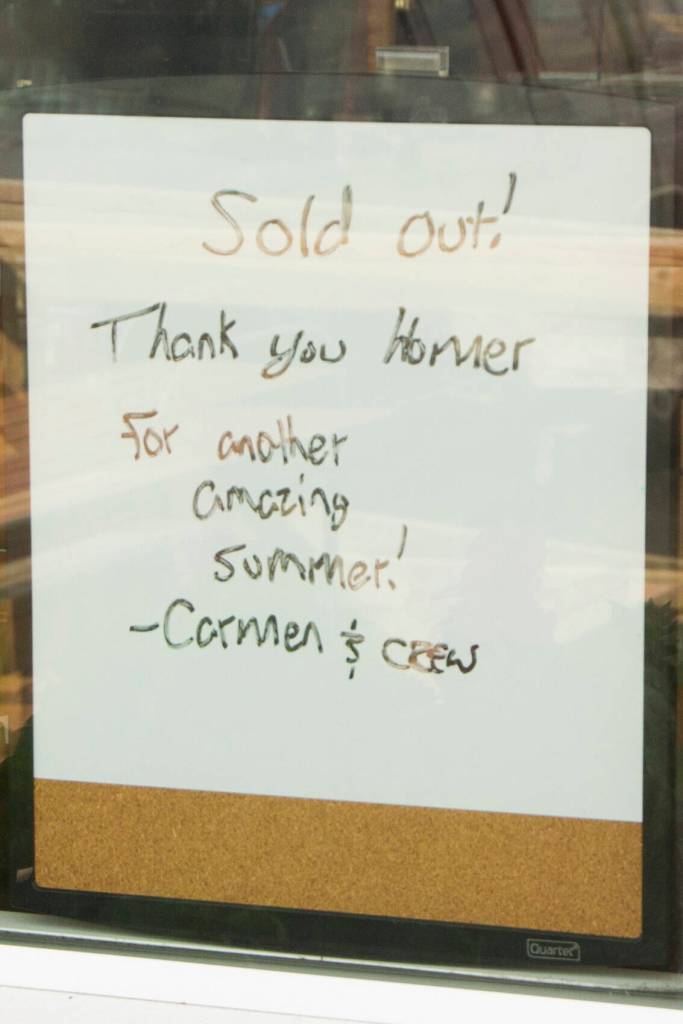 Sold out!
Thank you Homer
For another
amazing
summer!
-Carmen & CREW
Quartet